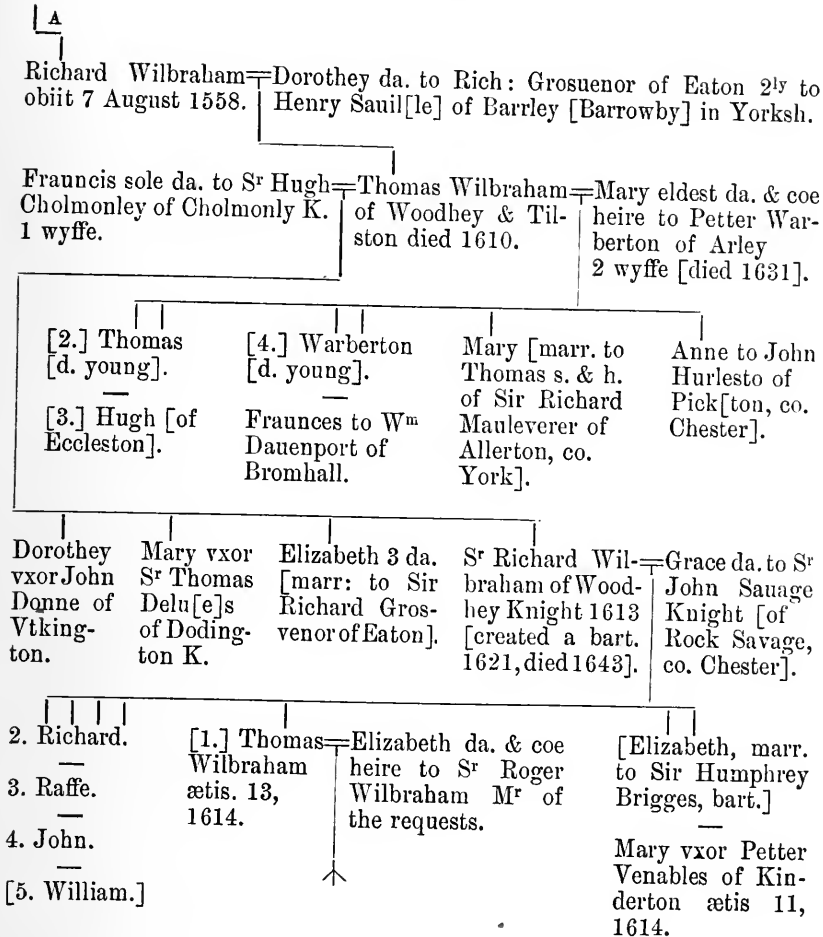 A
Richard Wilbraham=Dorothey da. to Rich : Grosuenor of Eaton 2ly to
obiit 7 August 1558. Henry Sauil[le] of Barrley [Barrowby] in Yorksh.
Frauncis sole da. to Sr Hugh
Cholmonley of Cholmonly K.
1 wyffe.
=Thomas Wilbraham=
of Woodhey & Til-
ston died 1610.
Mary eldest da. & coe
heire to Petter War-
berton of Arley
2 wyffe [died 1631].
[2.] Thomas
[d. young].
—
[3.] Hugh [of
Eccleston].
[4.] Warberton
[d. young].
—
Fraunces to Wm
Dauenport of
Bromhall.
Mary [marr. to
Thomas s. & h.
of Sir Richard
Mauleverer of
Allerton, co.
York].
Anne to John
Hurlesto of
Pick[ton, co.
Chester].
Dorothey
vxor John
Donne of
Vtking-
ton.
Mary vxor
Sr Thomas
Delu[e]s
of Doding-
ton K.
Elizabeth 3 da.
[marr: to Sir
Richard Gros-
venor of Eaton].
Sr Richard Wil-
braham of Wood-
hey Knight 1613
[created a bart.
1621, died 1643].
=Grace da. to Sr
John Sauage
Knight [of
Rock Savage,
co. Chester].
2. Richard.
—
3. Raffe.
—
4. John.
—
[5. William.]
[1.] Thomas
Wilbraham
ætis. 13,
1614.
=Elizabeth da. & coe
heire to Sr Roger
Wilbraham Mr of
the requests.
[Elizabeth, marr.
to Sir Humphrey
Brigges, bart.]
—
Mary vxor Petter
Venables of Kin-
derton ætis 11,
1614.